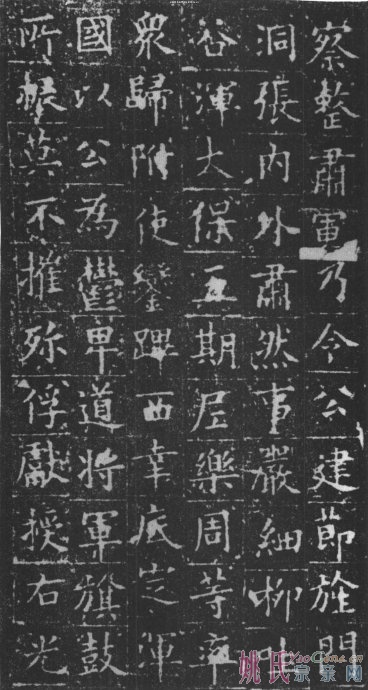 察整肅軍乃令公建節旌門
洞張内外肅然事嚴細柳吐
谷渾大保五期尼樂周等率
衆歸附使鑾蹕西幸底定渾
國以公為鬱卑道將軍旗鼓
所振莫不摧殄俘獻授右光
姚氏宗亲网